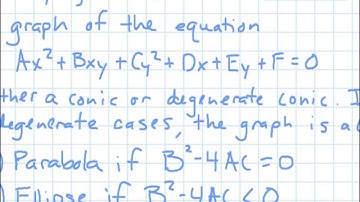 graph of the equation
Ax² + Bxy + Cy² + Dx + Ey + F = 0
a conic or degenerate conic.
cases, the graph is a
Parabola if B² - 4AC = 0
Ellipse if B² - 4AC < 0